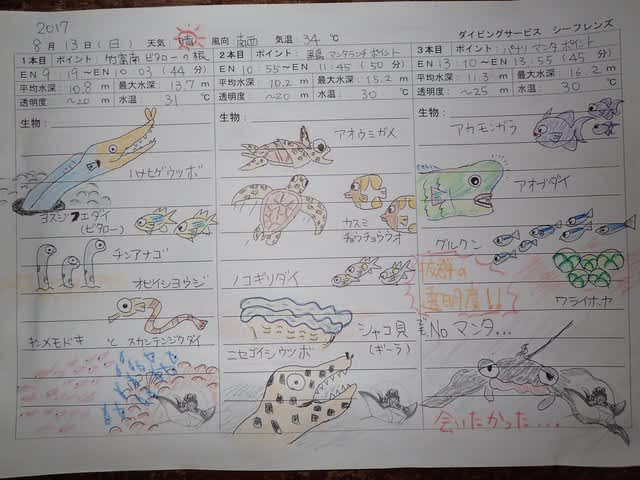 2017
8月13日(日) 天気 晴 風向 南西 気温 34℃ ダイビングサービス シーフレンズ
1本目 ポイント: 竹富南ビタローの根
EN 9:19~EN 10:03 (44分)
平均水深: 10.8 m 最大水深: 13.7 m
透明度: ~20 m 水温: 31 ℃
生物:
ハナヒゲウツボ
ヨスジフエダイ
(ビタロー)
チンアナゴ
オビイシヨウジ
キンメモドキ と スカシテンジクダイ
2本目 ポイント: 黒島マンタランチポイント
EN 10:55~11:45 (50分)
平均水深: 10.2 m 最大水深: 15.2 m
透明度: ~20 m 水温: 30 ℃
生物:
アオウミガメ
カスミ
チョウチョウウオ
ノコギリダイ
シャコ貝
(ギーラ)
ニセゴイシウツボ
3本目 ポイント: パナリ マンタポイント
EN 13:10~13:55 (45分)
平均水深: 11.3 m 最大水深: 16.2 m
透明度: ~25 m 水温: 30 ℃
生物:
アカモンガラ
アオブダイ
グルクン
抜群の
透明度!!
ワライボヤ
No マンタ...
会いたかった...